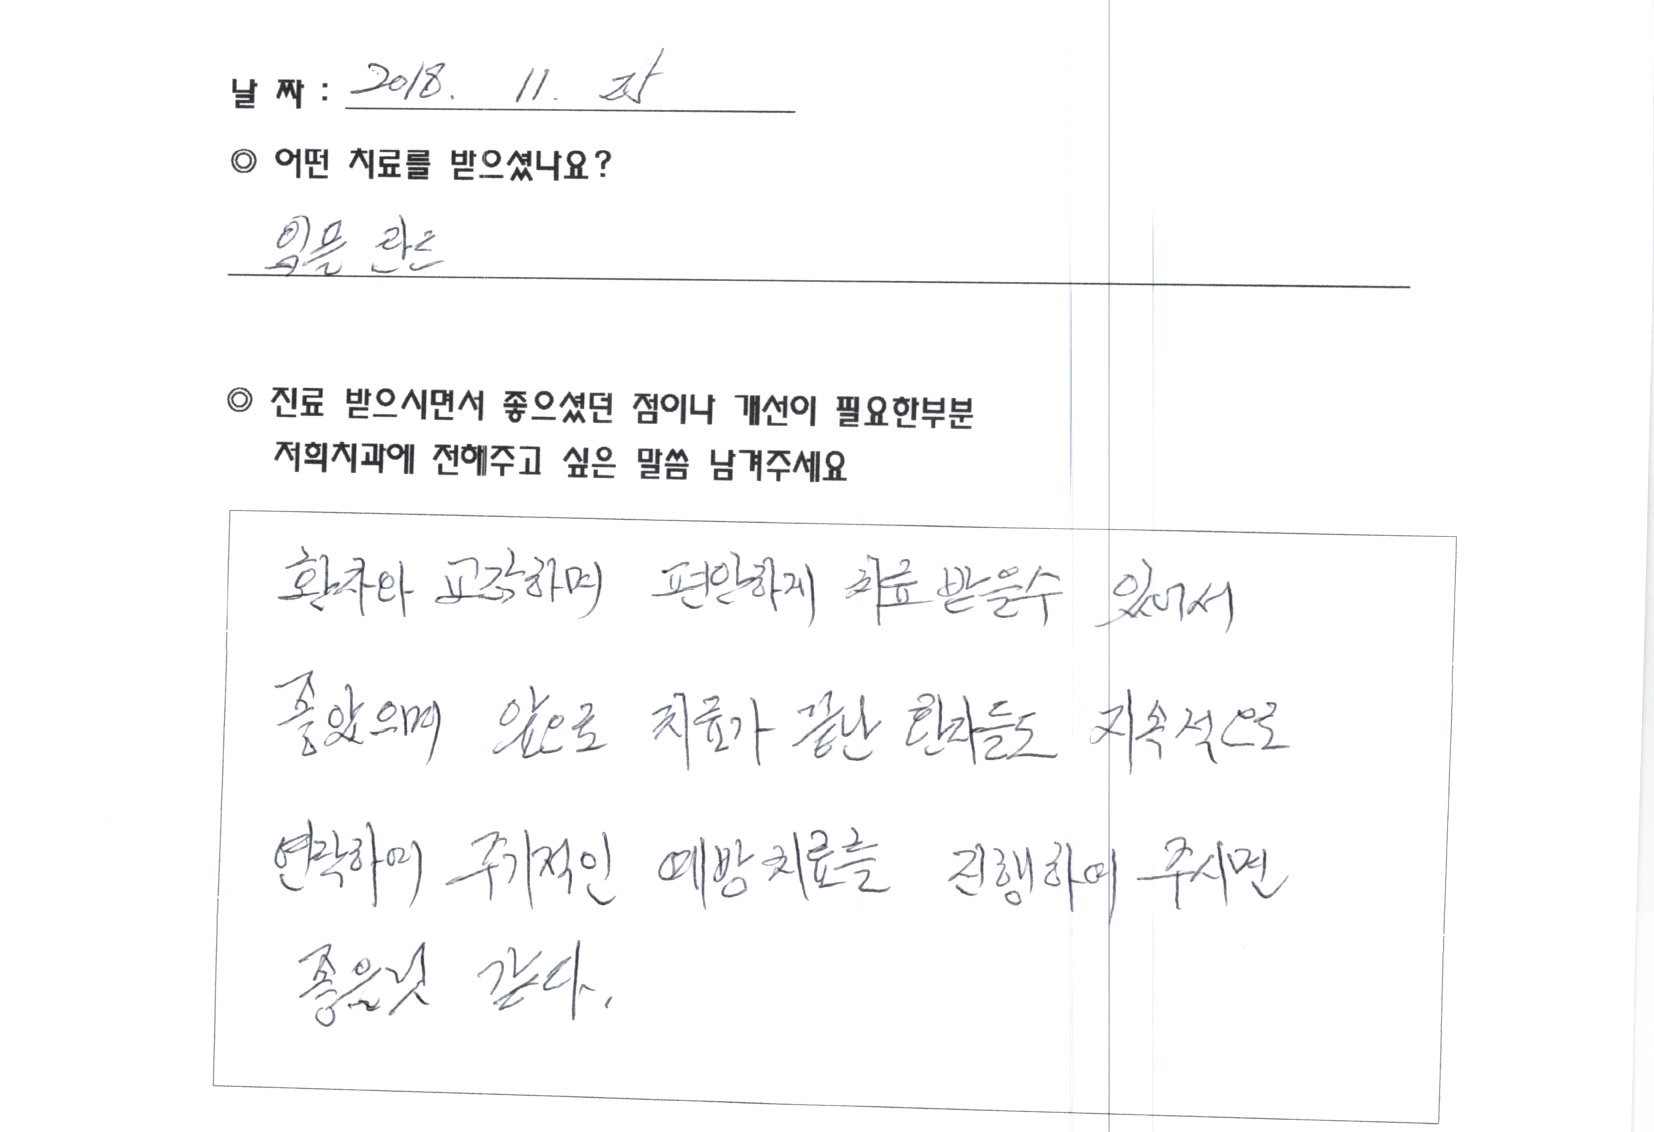 날 짜 : 2018. 11.
◎ 어떤 치료를 받으셨나요?
임플란트
◎ 진료 받으시면서 좋으셨던 점이나 개선이 필요한부분
저희치과에 전해주고 싶은 말씀 남겨주세요
환자와 교감하며 편안하게 치료 받을수 있어서
좋았으며 앞으로 치료가 끝난 환자들도 지속적으로
연락하며 주기적인 예방치료를 진행하여 주시면
좋을것 같다.